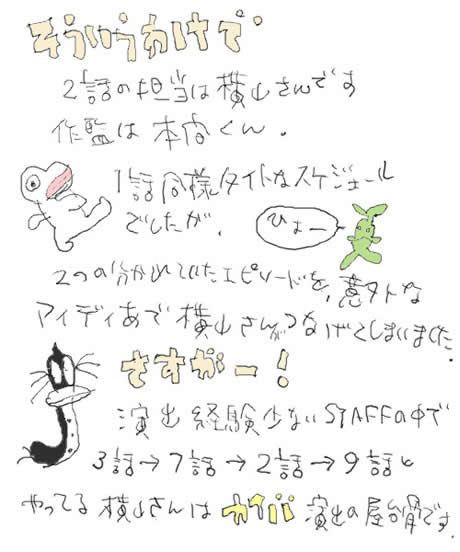 そういうわけで
2話の担当は横山さんです
作監は本宮くん.
1話同様タイトなスケジュール
でしたが,
ひょー
2つの分かれていたエピソードを,意外な
アイディあで横山さんがつなげてしまいました.
さすがー!
演出経験少ないSTAFFの中で
3話→7話→2話→9話と
やってる横山さんはカイバ演出の屋台骨です.